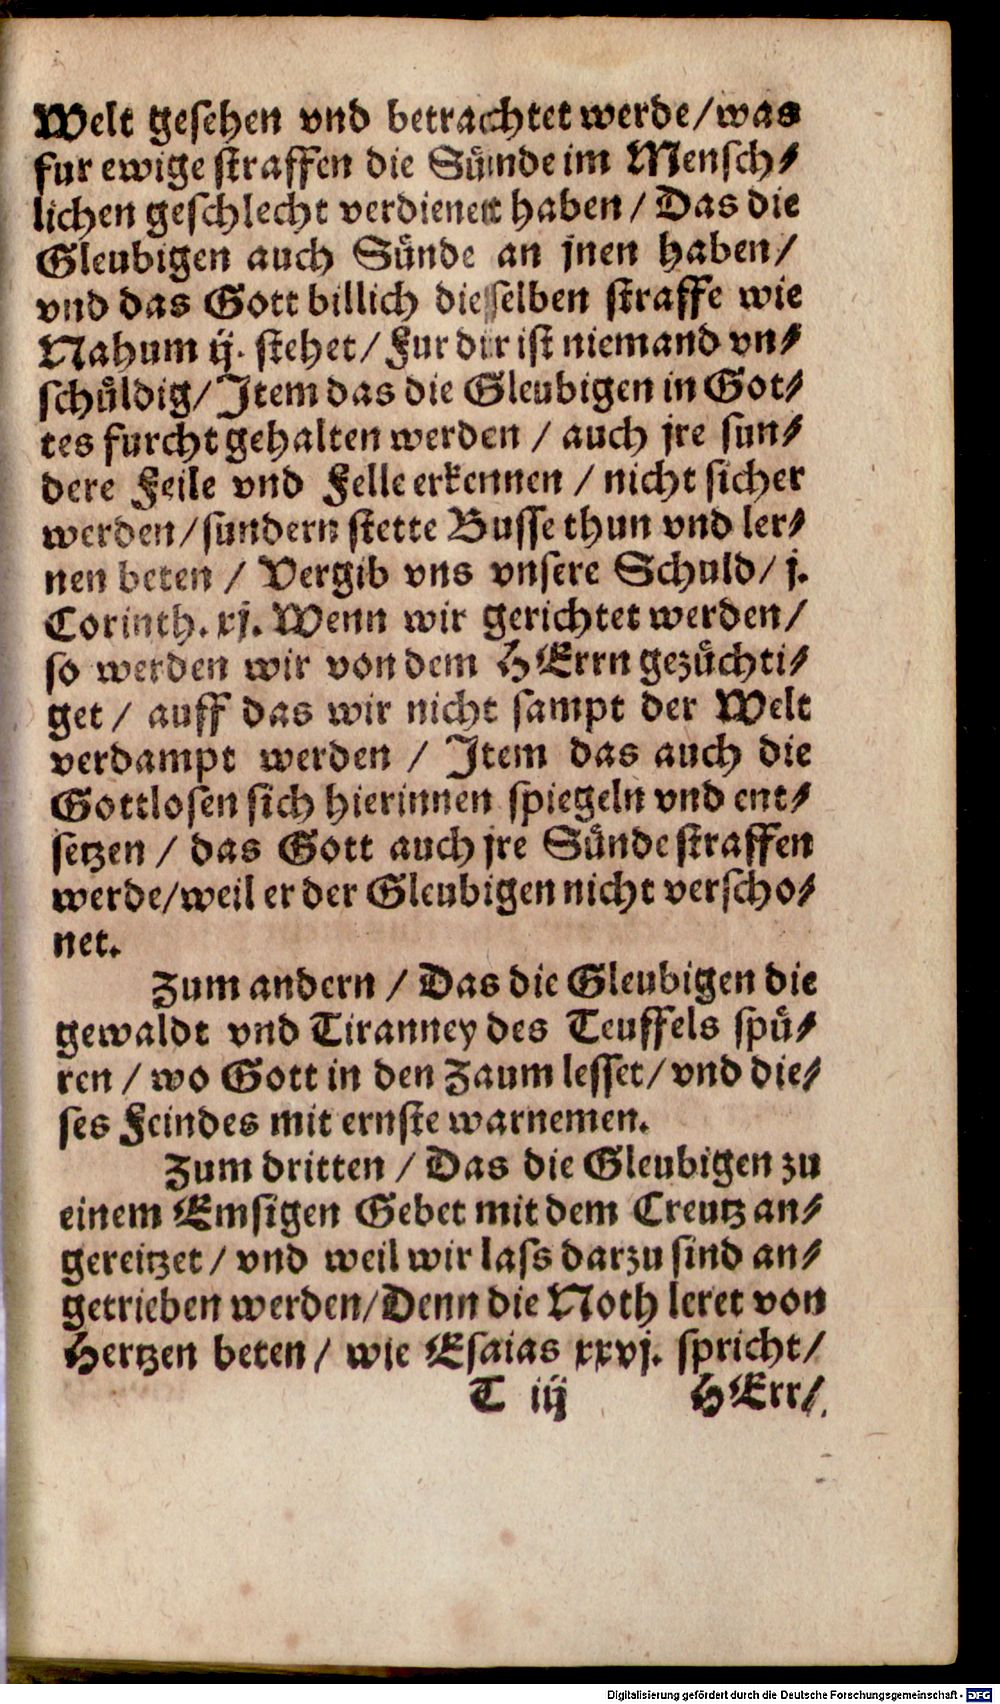 Welt gesehen vnd betrachtet werde/was
fur ewige straffen die Sünde im Mensch⸗
lichen geschlecht verdienet haben/ Das die
Gleubigen auch Sünde an jnen haben/
vnd das Gott billich dieselben straffe wie
Nahum ij. stehet/ Fur dir ist niemand vn⸗
schüldig/ Item das die Gleubigen in Got⸗
tes furcht gehalten werden / auch jre sun⸗
dere Feile vnd Felle erkennen / nicht sicher
werden/sundern stette Busse thun vnd ler⸗
nen beten / Vergib vns vnsere Schuld/ j.
Corinth. xj. Wenn wir gerichtet werden/
so werden wir von dem HErrn gezüchti⸗
get / auff das wir nicht sampt der Welt
verdampt werden / Item das auch die
Gottlosen sich hierinnen spiegeln vnd ent⸗
setzen / das Gott auch jre Sünde straffen
werde/weil er der Gleubigen nicht verscho⸗
net.
Zum andern / Das die Gleubigen die
gewaldt vnd Tiranney des Teuffels spü⸗
ren / wo Gott in den Zaum lesset/ vnd die⸗
ses Feindes mit ernste warnemen.
Zum dritten / Das die Gleubigen zu
einem Emsigen Gebet mit dem Creutz an⸗
gereitzet / vnd weil wir lass darzu sind an⸗
getrieben werden/Denn die Noth leret von
Hertzen beten / wie Esaias xxvj. spricht/
T iij HErr/
Digitalisierung gefördert durch die Deutsche Forschungsgemeinschaft - DFG